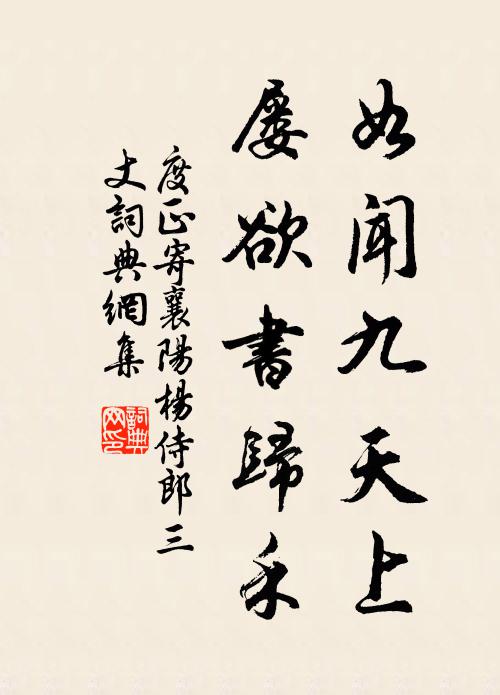 如聞九天上
屡欲書歸禾
度正寄襄陽楊侍郎三
丈詞典網集
詞典
网印